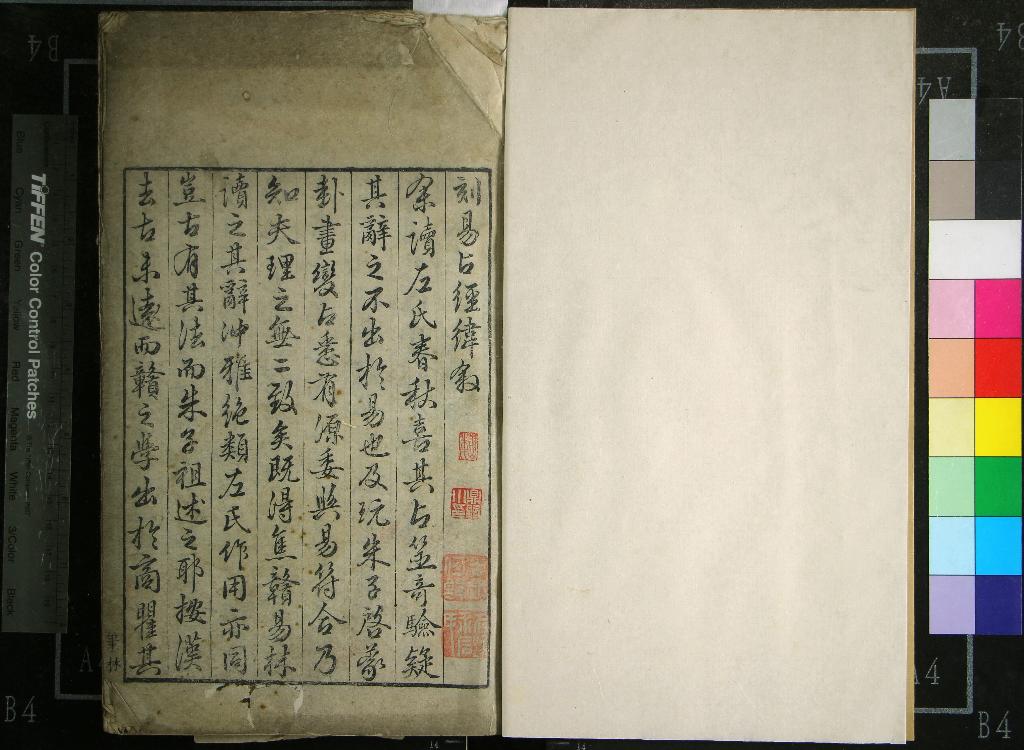 刻易占經緯敘
余讀左氏春秋喜其占筮奇驗疑
其辭之不出於易也及玩朱子啓蒙
卦畫變占悉有源委與易符合乃
知夫理之無二致矣既得焦贛易林
讀之其辭沖雅絶類左氏作用亦同
豈古有其法而朱子祖述之耶按漢
去古未遠而贛之學出於商瞿其
B4
A4
TIFFEN Color Control Patches
Blue
Cyan
Green
Yellow
Red
Magenta
White
3/Color
Black
B4
A4
B4